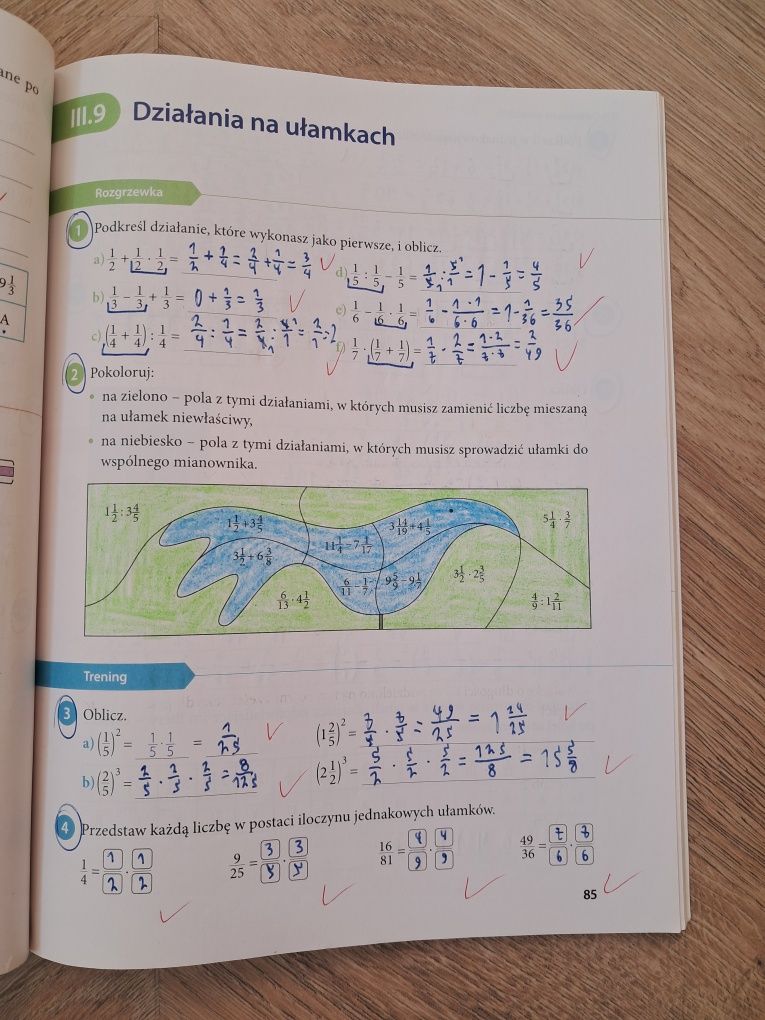 ane po
9 1/3
A
III.9 Działania na ułamkach
Rozgrzewka
1 Podkreśl działanie, które wykonasz jako pierwsze, i oblicz.
a) 1/2 + 1/2 · 1/2 = 1/2 + 1/4 = 2/4 + 1/4 = 3/4
b) 1/3 − 1/3 + 1/3 = 0 + 1/3 = 1/3
c) (1/4 + 1/4) : 1/4 = 2/4 : 1/4 = 2/4 · 4/1 = 2/1 = 2
d) 1/5 : 1/5 − 1/5 = 1/5 · 5/1 = 1 − 1/5 = 4/5
e) 1/6 − 1/6 · 1/6 = 1/6 − 1·1/6·6 = 1 − 1/36 = 35/36
f) 1/7 · (1/7 + 1/7) = 1/7 · 2/7 = 1·2/7·7 = 2/49
2 Pokoloruj:
• na zielono – pola z tymi działaniami, w których musisz zamienić liczbę mieszaną
na ułamek niewłaściwy,
• na niebiesko – pola z tymi działaniami, w których musisz sprowadzić ułamki do
wspólnego mianownika.
1 1/2 : 3 4/5
1 1/2 + 3 4/5
11 1/4 − 7 1/17
3 14/19 + 4 1/5
5 1/4 · 3/7
3 1/2 + 6 3/8
6/11 − 1/7
9 5/9 − 9 1/7
3 1/2 · 2 3/5
6/13 · 4 1/2
4/9 : 1 2/11
Trening
3 Oblicz.
a) (1/5)² = 1/5 · 1/5 = 1/25
(1 2/5)² = 7/5 · 7/5 = 49/25 = 1 24/25
b) (2/5)³ = 2/5 · 2/5 · 2/5 = 8/125
(2 1/2)³ = 5/2 · 5/2 · 5/2 = 125/8 = 15 5/8
4 Przedstaw każdą liczbę w postaci iloczynu jednakowych ułamków.
1/4 = 1/2 · 1/2
9/25 = 3/5 · 3/5
16/81 = 4/9 · 4/9
49/36 = 7/6 · 7/6
85